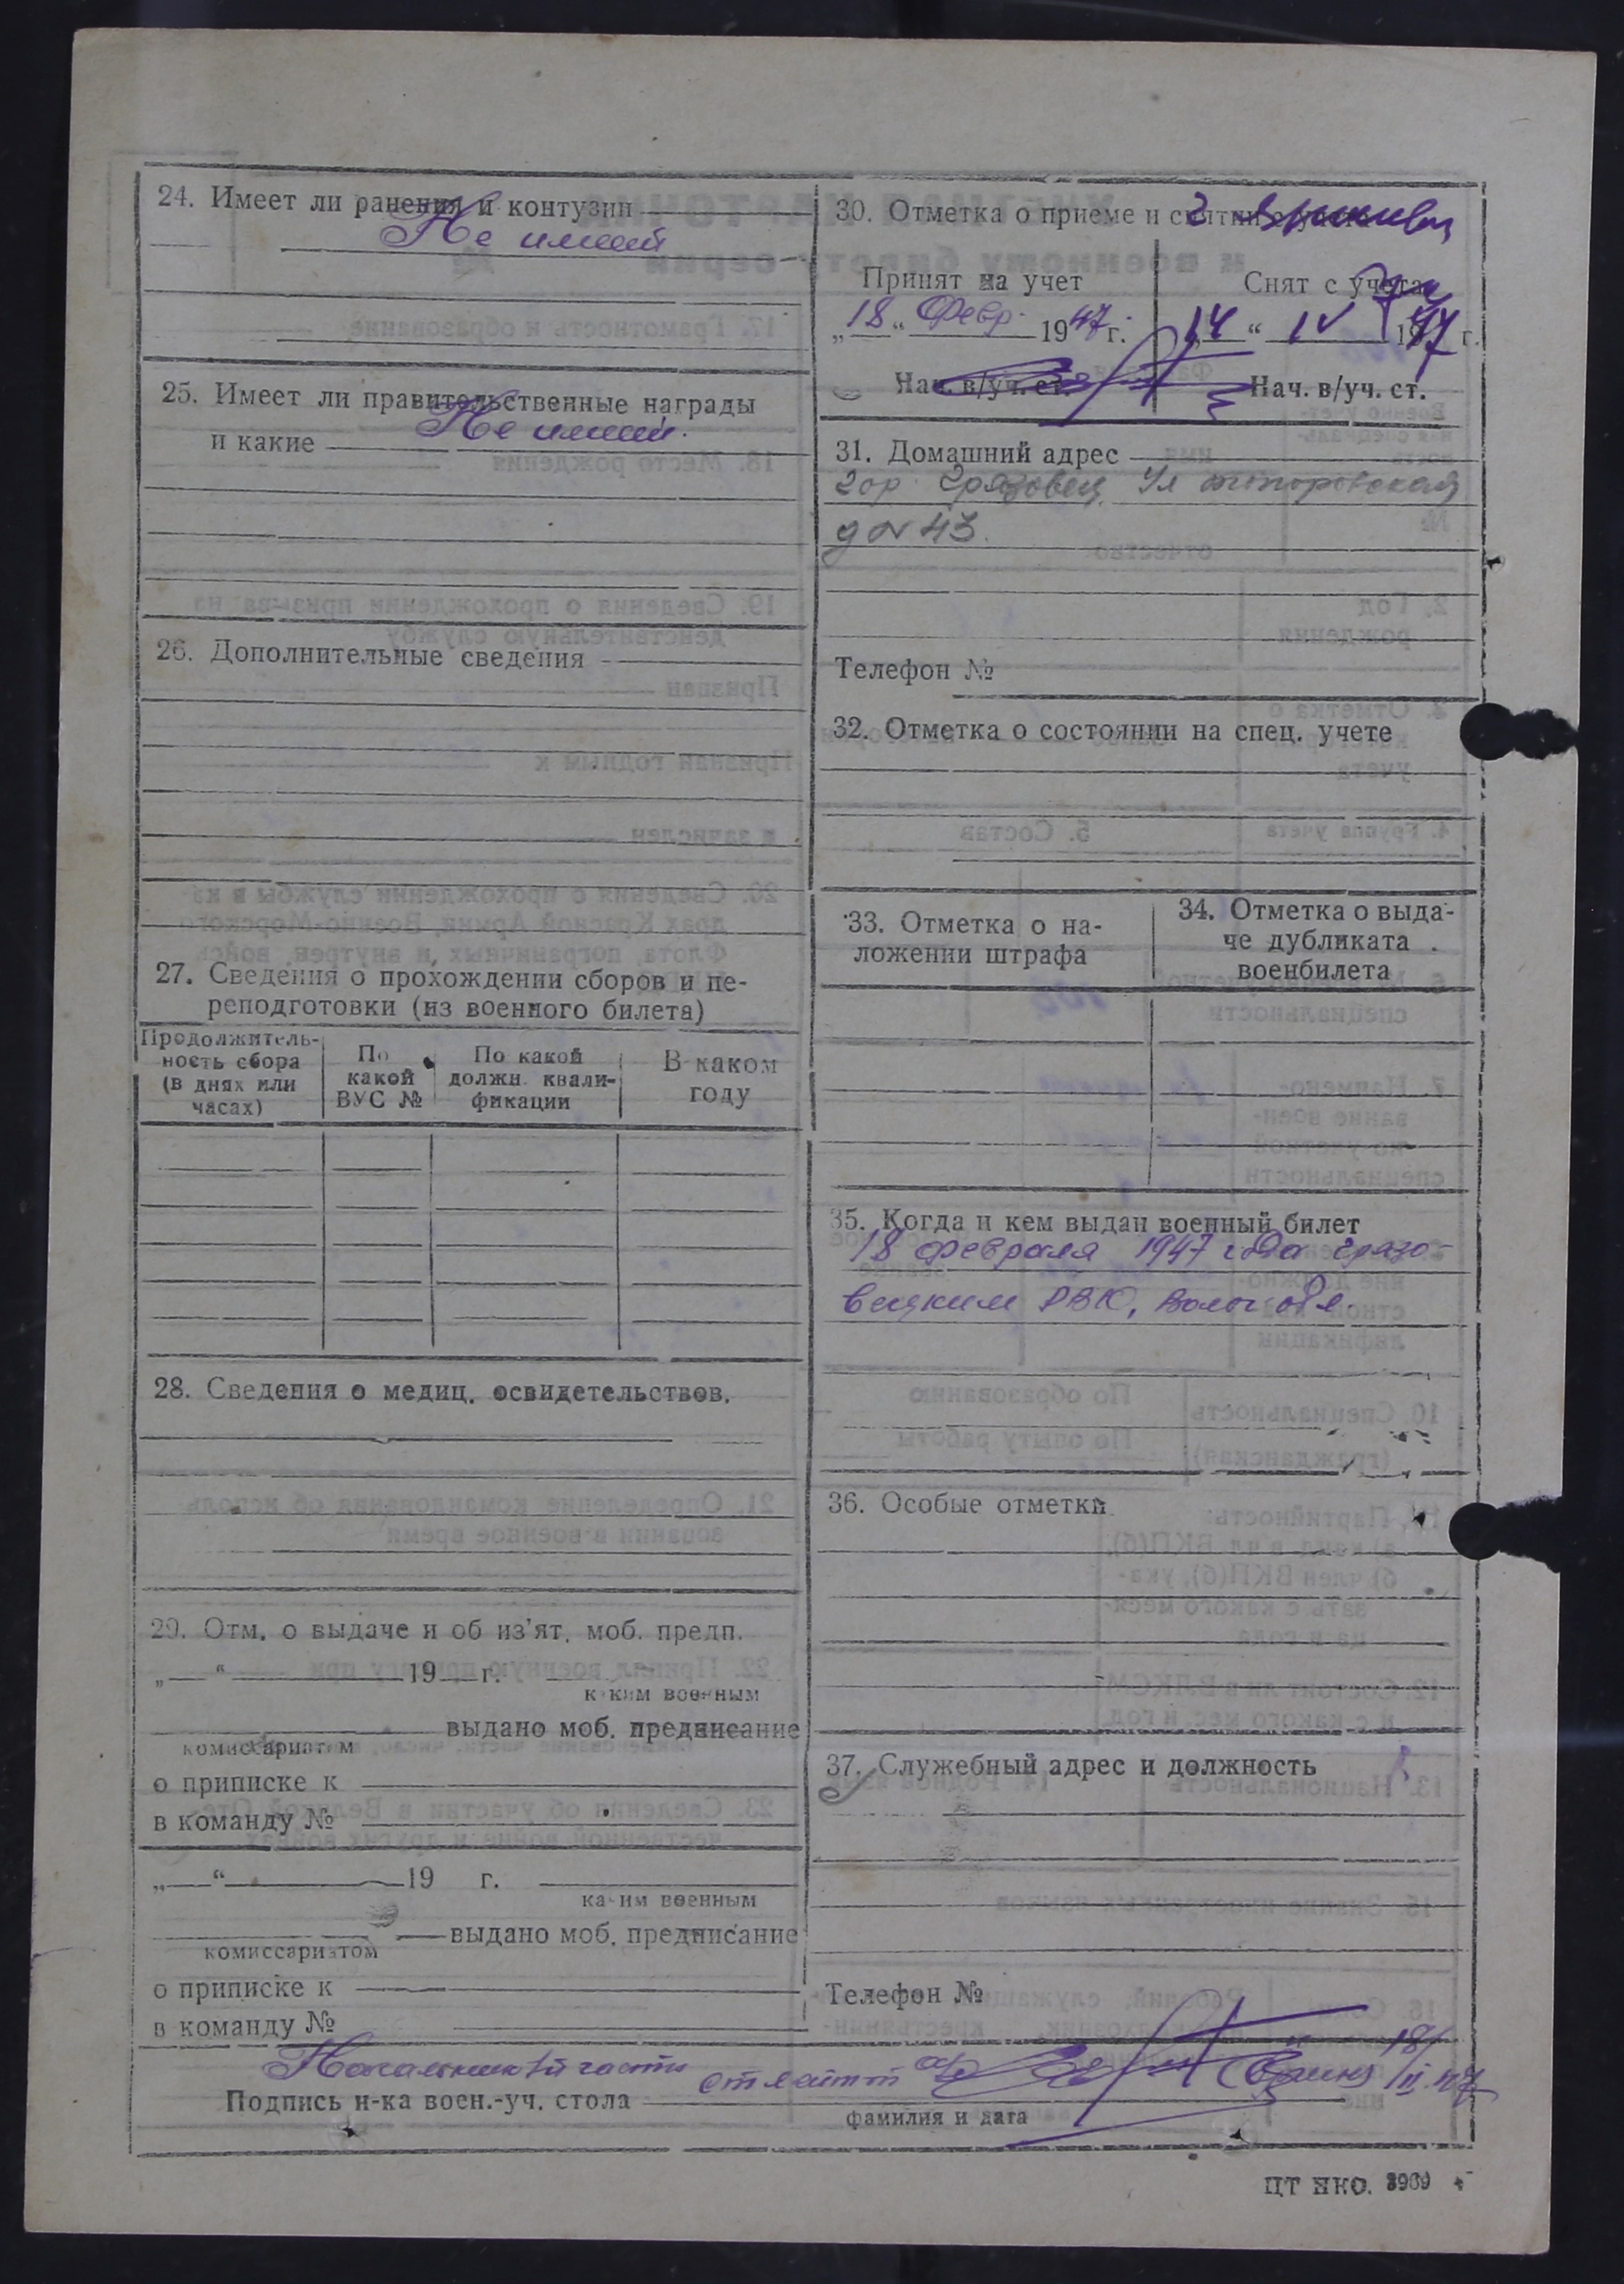 24. Имеет ли ранения и контузии
Не имеет
25. Имеет ли правительственные награды
и какие Не имеет.
26. Дополнительные сведения
27. Сведения о прохождении сборов и пе-
реподготовки (из военного билета)
Продолжитель-
ность сбора
(в днях или
часах)
По
какой
ВУС №
По какой
должн. квали-
фикации
В каком
году
28. Сведения о медиц. освидетельствов.
29. Отм. о выдаче и об из'ят. моб. предп.
„ “ 19 г.
каким военным
выдано моб. предписание
комиссариатом
о приписке к
в команду №
„ “ 19 г.
каким военным
выдано моб. предписание
комиссариатом
о приписке к
в команду №
30. Отметка о приеме и снятии с учета
Принят на учет
„18“ Февр. 1947 г.
Нач. в/уч. ст.
Снят с учета
„14“ IV 1947 г.
Нач. в/уч. ст.
31. Домашний адрес
гор. Грязовец Ул
д № 43.
Телефон №
32. Отметка о состоянии на спец. учете
33. Отметка о на-
ложении штрафа
34. Отметка о выда-
че дубликата
военбилета
35. Когда и кем выдан военный билет
18 февраля 1947 года Грязо-
вецким РВК, Волог. обл.
36. Особые отметки
37. Служебный адрес и должность
Телефон №
Начальник части 18/
Подпись н-ка воен.-уч. стола II.47
фамилия и дата
ЦТ НКО. 3969